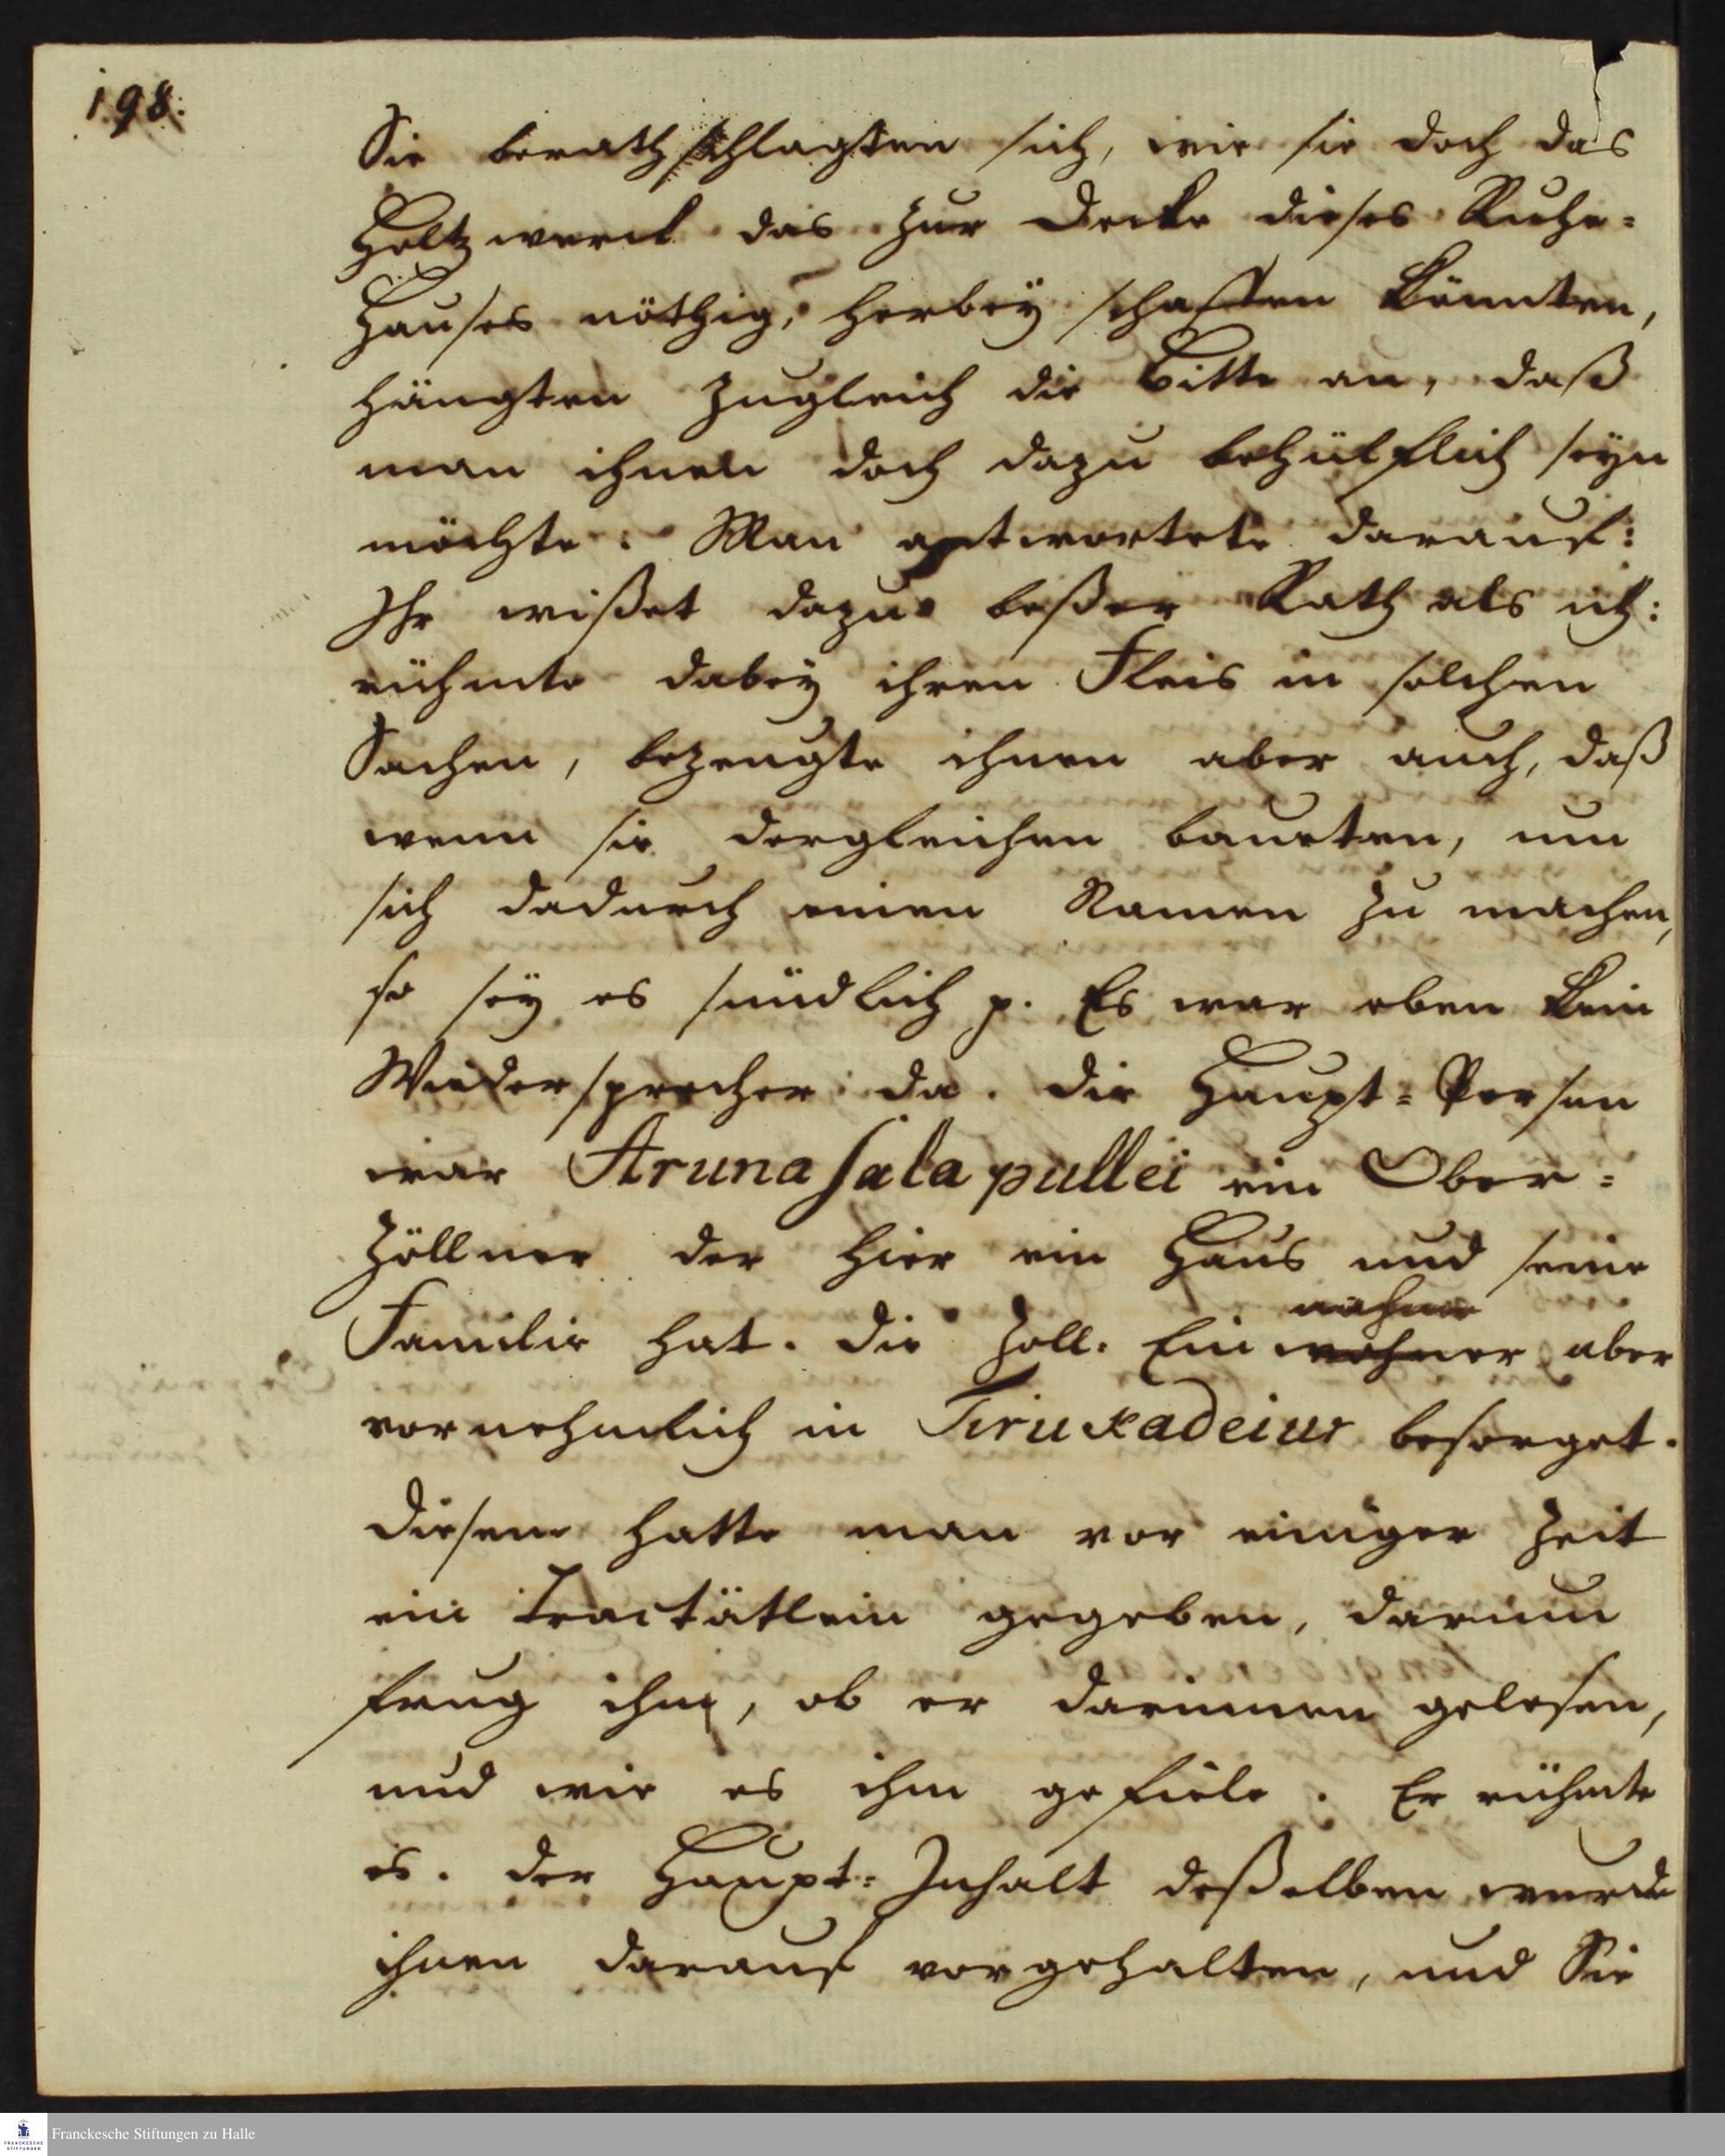 198.
Sie berathschlagten sich, wie sie doch das
Holtzwerck das zur Decke dieses Ruhe-
Hauses nöthig, herbeÿ schaffen könnten,
hängten zugleich die Bitte an, daß
man ihnen doch dazu behülflich seÿn
möchte. Man antwortete darauf:
Ihr wißet dazu beßer Rath als ich:
rühmte dabeÿ ihren Fleis in solchen
Sachen, bezeugte ihnen aber auch, daß
wenn sie dergleichen baueten, um
sich dadurch einen Namen zu machen,
so seÿ es sündlich p. Es war eben kein
Wiedersprecher da. Die Haupt-Person
war Arunasalapullei ein Ober-
Zöllner der hier ein Haus und seine
Familie hat. Die Zoll. Einwohner aber
nahme
vornehmlich in Tirukadeiur besorget.
Diesem hatte man vor einiger Zeit
ein Tractätlein gegeben, darum
frug ihn, ob er darinnen gelesen,
und wie es ihm gefiele. Er rühmte
es. Der Haupt-Inhalt deßelben wurde
ihnen darauf vorgehalten, und Sie
Franckesche Stiftungen zu Halle
FRANCKESCHE
STIFTUNGEN